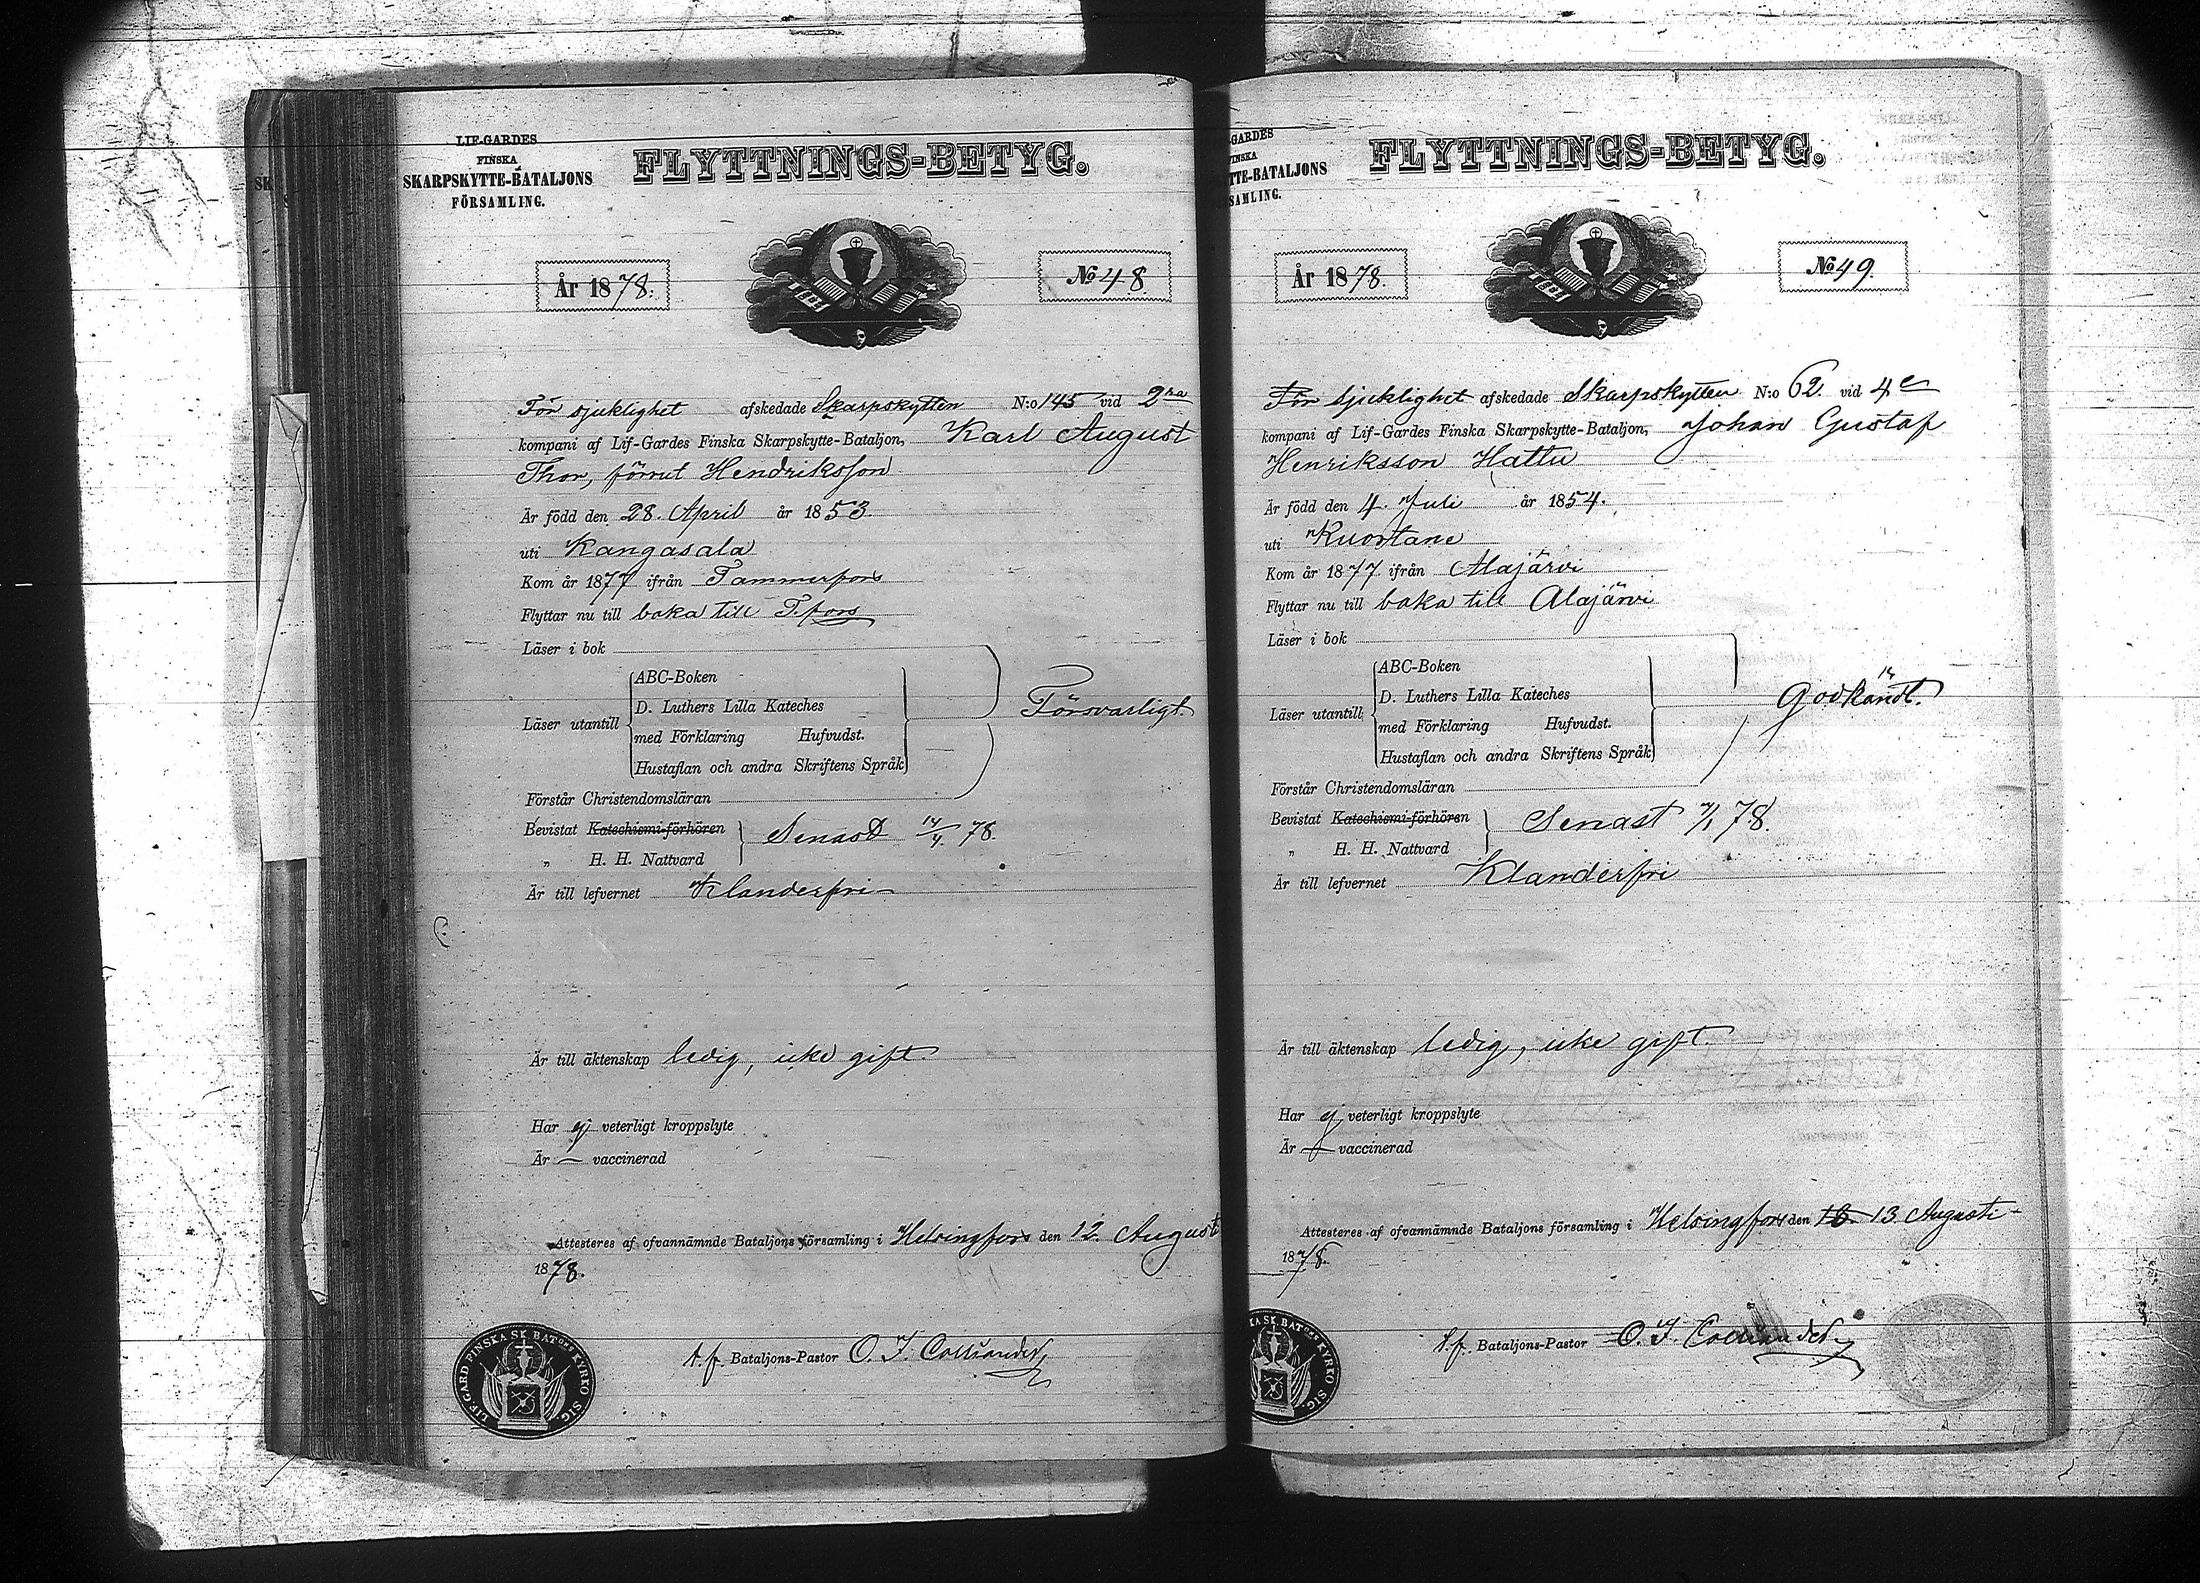 LIF-GARDES
FINSKA
SKARPSKYTTE-BATALJONS
FÖRSAMLING.
FLYTTNINGS-BETYG.
År 1878.
No 48
För sjuklighet afskedade Skarpskytten N:o 145 vid 2ra
kompani af Lif-Gardes Finska Skarpskytte-Bataljon, Karl August
Thor, förrut Hendriksson
Är född den 28. April år 1853
uti Kangasala
Kom år 1877 ifrån Tammerfors
Flyttar nu till baka till T.fors
Läser i bok
Läser utantill
ABC-Boken
D. Luthers Lilla Kateches
med Förklaring Hufvudst.
Hustaflan och andra Skriftens Språk
Försvarligt.
Förstår Christendomsläran
Bevistat Katechismi-förhören
„ H. H. Nattvard
Senast 14/4 78.
Är till lefvernet Klanderfri
Är till äktenskap ledig, icke gift
Har ej veterligt kroppslyte
Är — vaccinerad
Attesteres af ofvannämnde Bataljons församling i Helsingfors den 12. August
1878.
LIF-GARD FINSKA SK. BATONS KYRKO SIG.
t.f. Bataljons-Pastor O. I. Colliander
GARDES
INSKA
TTE-BATALJONS
SAMLING.
FLYTTNINGS-BETYG.
År 1878.
No 49.
För sjuklighet afskedade Skarpskytten N:o 62. vid 4e
kompani af Lif-Gardes Finska Skarpskytte-Bataljon, Johan Gustaf
Henriksson Hattu
Är född den 4. Juli år 1854.
uti Kuortane
Kom år 1877 ifrån Alajärvi
Flyttar nu till baka till Alajärvi
Läser i bok
Läser utantill
ABC-Boken
D. Luthers Lilla Kateches
med Förklaring Hufvudst.
Hustaflan och andra Skriftens Språk
Godkändt.
Förstår Christendomsläran
Bevistat Katechismi-förhören
„ H. H. Nattvard
Senast 78.
Är till lefvernet Klanderfri
Är till äktenskap ledig, icke gift.
Har ej veterligt kroppslyte
Är — vaccinerad
Attesteres af ofvannämnde Bataljons församling i Helsingfors den 13 Augusti
1878.
KA SK. BATONS KYRKO SIG.
t.f. Bataljons-Pastor O. I. Colliander